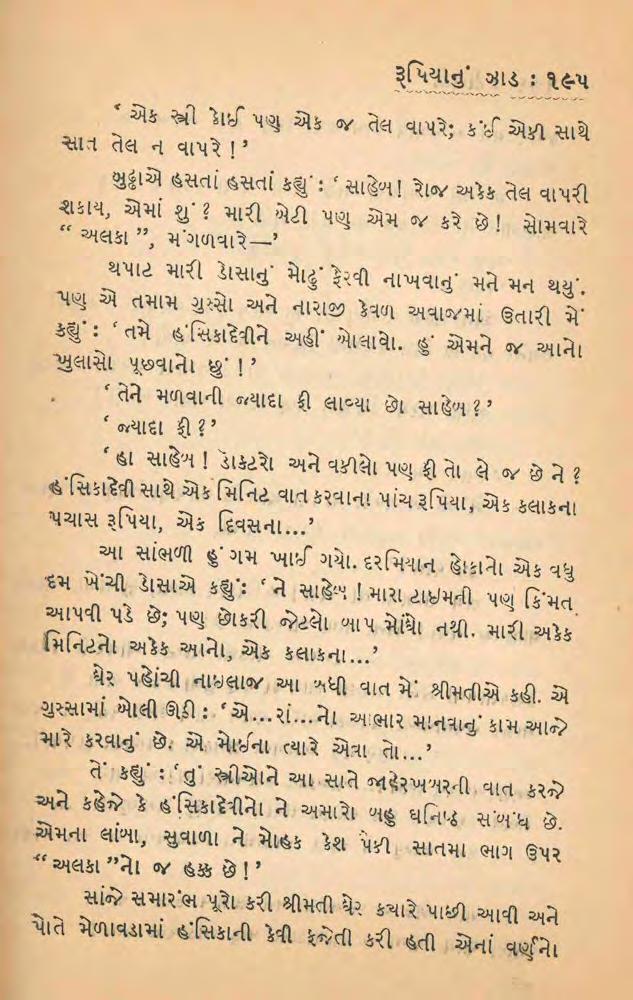 રૂપિયાનું ઝાડ : ૧૯૫
‘ એક સ્ત્રી કોઈ પણ એક જ તેલ વાપરે; કંઈ એકી સાથે
સાત તેલ ન વાપરે ! ’
બુઢ્ઢાએ હસતાં હસતાં કહ્યું : ‘ સાહેબ! રોજ અકેક તેલ વાપરી
શકાય, એમાં શું ? મારી બેટી પણ એમ જ કરે છે ! સોમવારે
“ અલકા ”, મંગળવારે—’
થપાટ મારી ડોસાનું મોઢું ફેરવી નાખવાનું મને મન થયું.
પણ એ તમામ ગુસ્સો અને નારાજી કેવળ અવાજમાં ઉતારી મેં
કહ્યું : ‘ તમે હંસિકાદેવીને અહીં બોલાવો. હું એમને જ આનો
ખુલાસો પૂછવાનો છું ! ’
‘ તેને મળવાની જ્યાદા ફી લાવ્યા છો સાહેબ ? ’
‘ જ્યાદા ફી ? ’
‘ હા સાહેબ ! ડૉક્ટરો અને વકીલો પણ ફી તો લે જ છે ને ?
હંસિકાદેવી સાથે એક મિનિટ વાત કરવાના પાંચ રૂપિયા, એક કલાકના
પચાસ રૂપિયા, એક દિવસના...’
આ સાંભળી હું ગમ ખાઈ ગયો. દરમિયાન હોકાનો એક વધુ
દમ ખેંચી ડોસાએ કહ્યું: ‘ ને સાહેબ ! મારા ટાઇમની પણ કિંમત
આપવી પડે છે; પણ છોકરી જેટલો બાપ મોંઘો નથી. મારી અકેક
મિનિટનો અકેક આનો, એક કલાકના...’
ઘેર પહોંચી નાઇલાજ આ બધી વાત મેં શ્રીમતીએ કહી. એ
ગુસ્સામાં બોલી ઊઠી : ‘ એ...રાં...નો આભાર માનવાનું કામ આજે
મારે કરવાનું છે. એ મોઈના ત્યારે એવા તો...’
તેં કહ્યું : ‘ તું સ્ત્રીઓને આ સાતે જાહેરખબરની વાત કરજે
અને કહેજે કે હંસિકાદેવીનો ને અમારો બહુ ઘનિષ્ઠ સંબંધ છે.
એમના લાંબા, સુવાળા ને મોહક કેશ પૈકી સાતમા ભાગ ઉપર
“ અલકા ”નો જ હક્ક છે ! ’
સાંજે સમારંભ પૂરો કરી શ્રીમતી ઘેર કયારે પાછી આવી અને
પોતે મેળાવડામાં હંસિકાની કેવી ફજેતી કરી હતી એનાં વર્ણનો